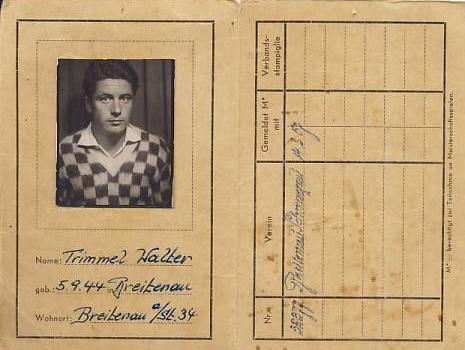 Name: Trimmel Walter
geb.: 5.9.44 in Breitenau
Wohnort: Breitenau a/St. 34
Verbands-
stampiglie
Gemeldet M*
mit
Verein
Nr.
M* = berechtigt zur Teilnahme an Meisterschaftsspielen.